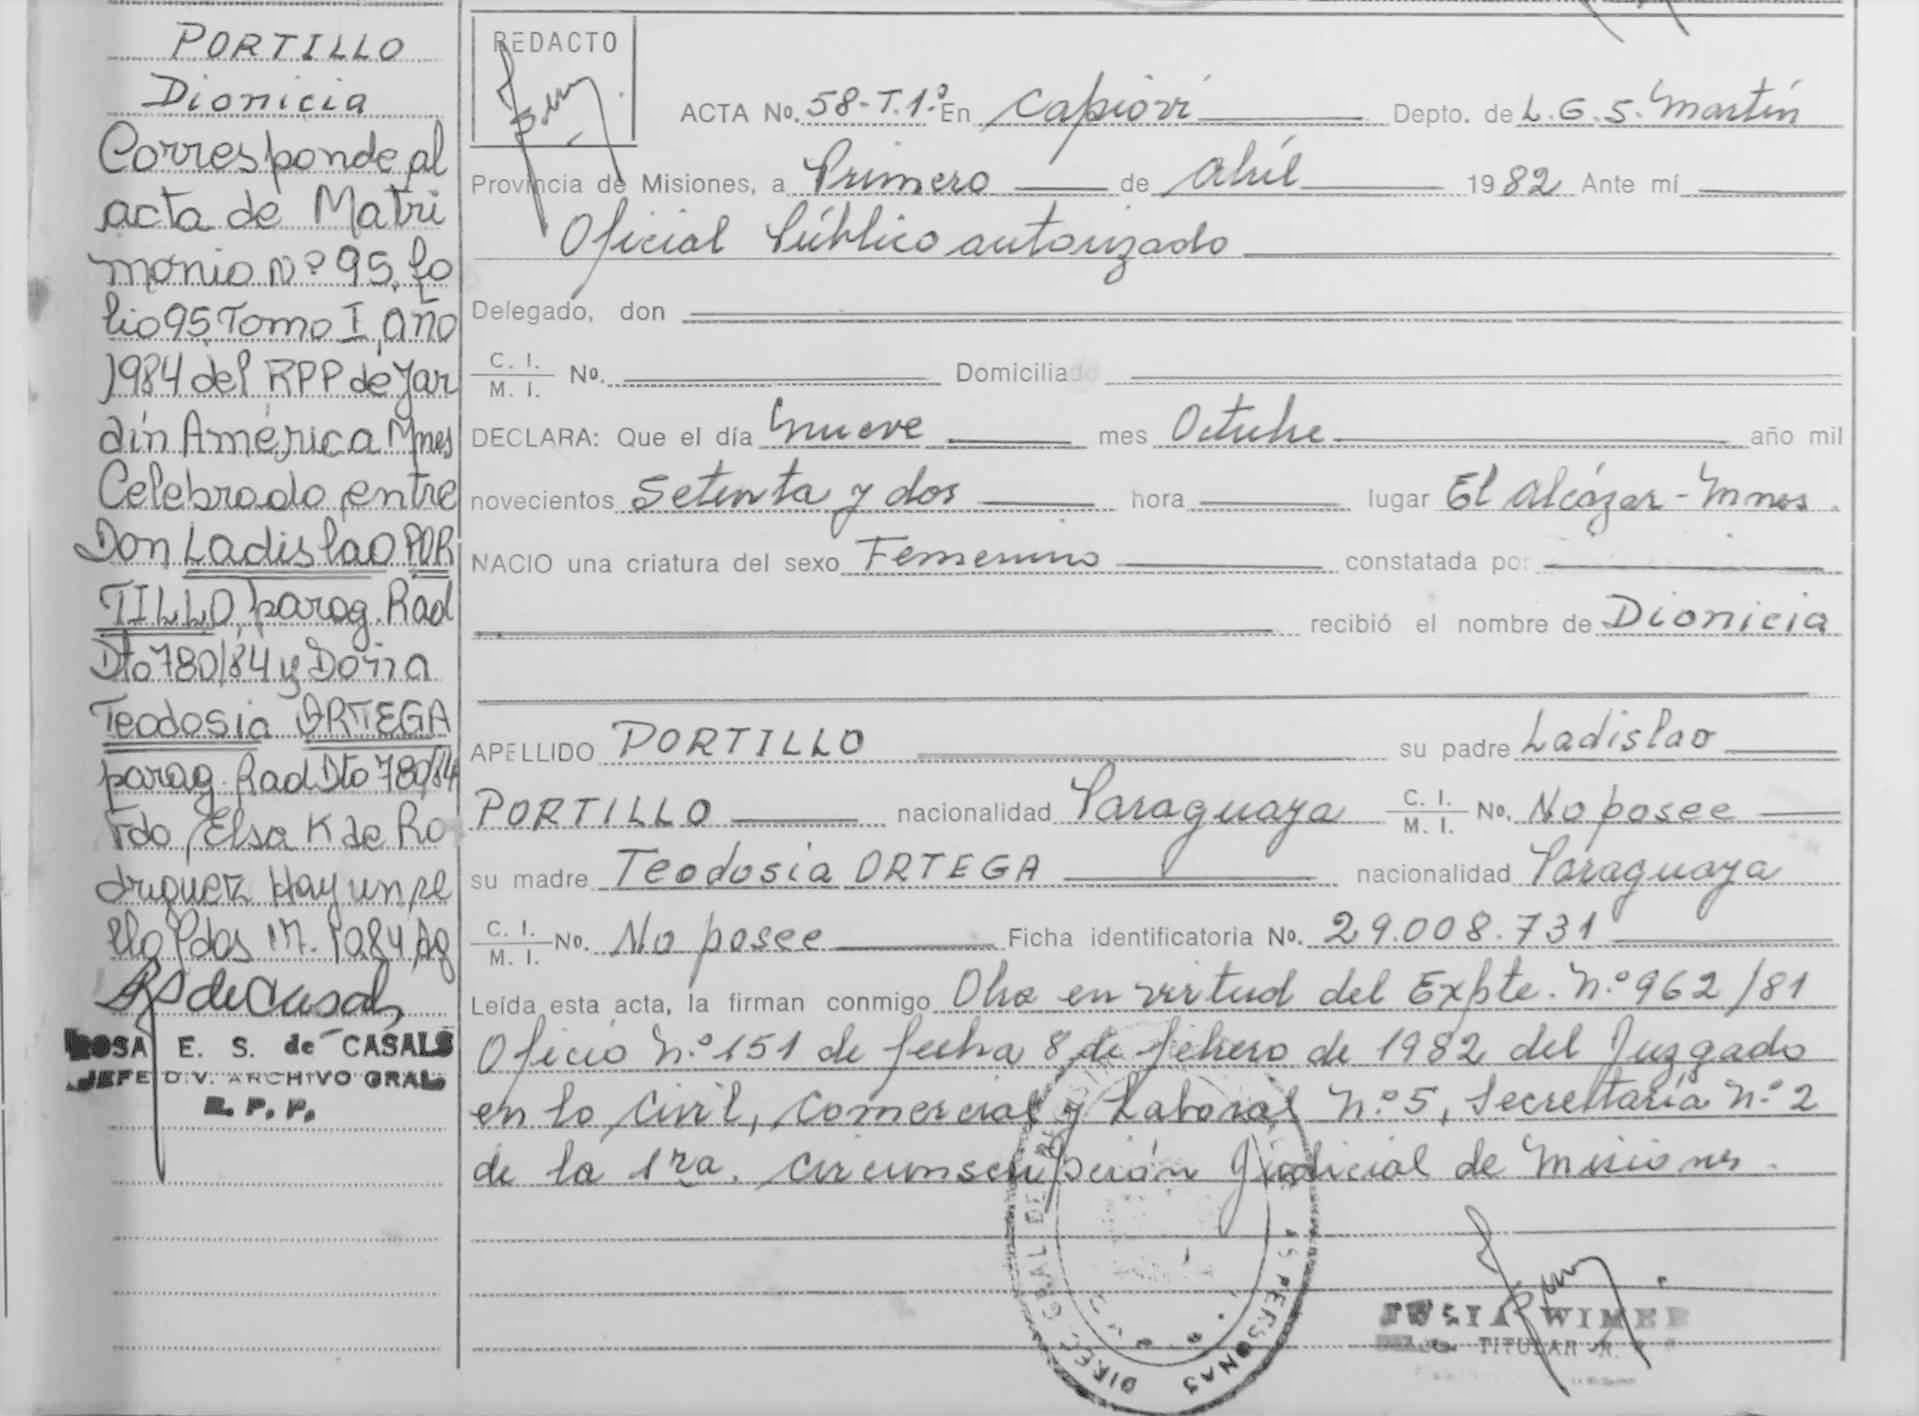 PORTILLO
Dionicia
Corresponde al
acta de Matri
monio Nº 95, fo
lio 95 Tomo I, año
1984 del RPP de Jar
dín América Mnes
Celebrado entre
Don Ladislao POR
TILLO, parag. Rad
Dto 780/84 y Doña
Teodosia ORTEGA
parag. Rad Dto 780/84
Fdo, Elsa K de Ro
driguez Hay un se
llo Pdas 1984
ROSA E. S. de CASALS
JEFE DIV. ARCHIVO GRAL
R. P. P.
REDACTO
ACTA No. 58-T.1º En Capiovi Depto. de L.G.S. Martín
Provincia de Misiones, a Primero de Abril 1982 Ante mí
Oficial Público autorizado
Delegado, don
C. I. / M. I. No. Domiciliado
DECLARA: Que el día nueve mes Octubre año mil
novecientos Setenta y dos hora lugar El Alcázar - Mnes.
NACIO una criatura del sexo Femenino constatada por
recibió el nombre de Dionicia
APELLIDO PORTILLO su padre Ladislao
PORTILLO nacionalidad Paraguaya C. I. / M. I. No. No posee
su madre Teodosia ORTEGA nacionalidad Paraguaya
C. I. / M. I. No. No posee Ficha identificatoria No. 29.008.731
Leída esta acta, la firman conmigo Obra en virtud del Expte. Nº 962/81
Oficio Nº 151 de fecha 8 de febrero de 1982 del Juzgado
en lo Civil, Comercial y Laboral Nº 5, Secrettaría Nº 2
de la 1ra. Circunscripción Judicial de Misiones.
DIREC. GRAL DE PERSONAS
WIMER
TITULAR